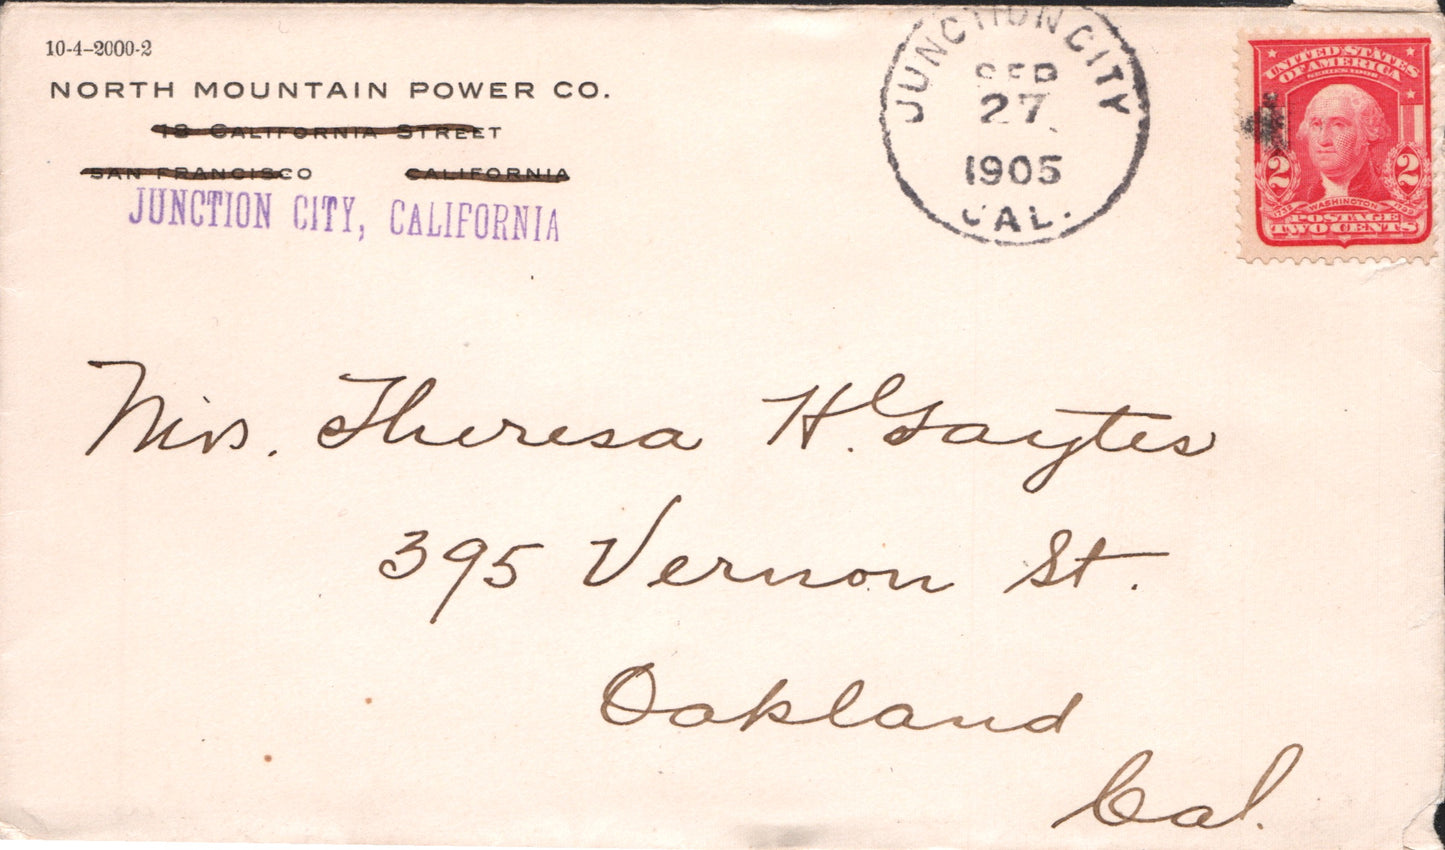 10-4-2000-2
NORTH MOUNTAIN POWER CO.
18 CALIFORNIA STREET
SAN FRANCISCO CALIFORNIA
JUNCTION CITY, CALIFORNIA
JUNCTION CITY
SEP
27
1905
CAL.
UNITED STATES
OF AMERICA
SERIES 1902
2 2
1732 WASHINGTON 1799
POSTAGE
TWO CENTS
Mrs. Theresa H. Gaytes
395 Vernon St.
Oakland
Cal.